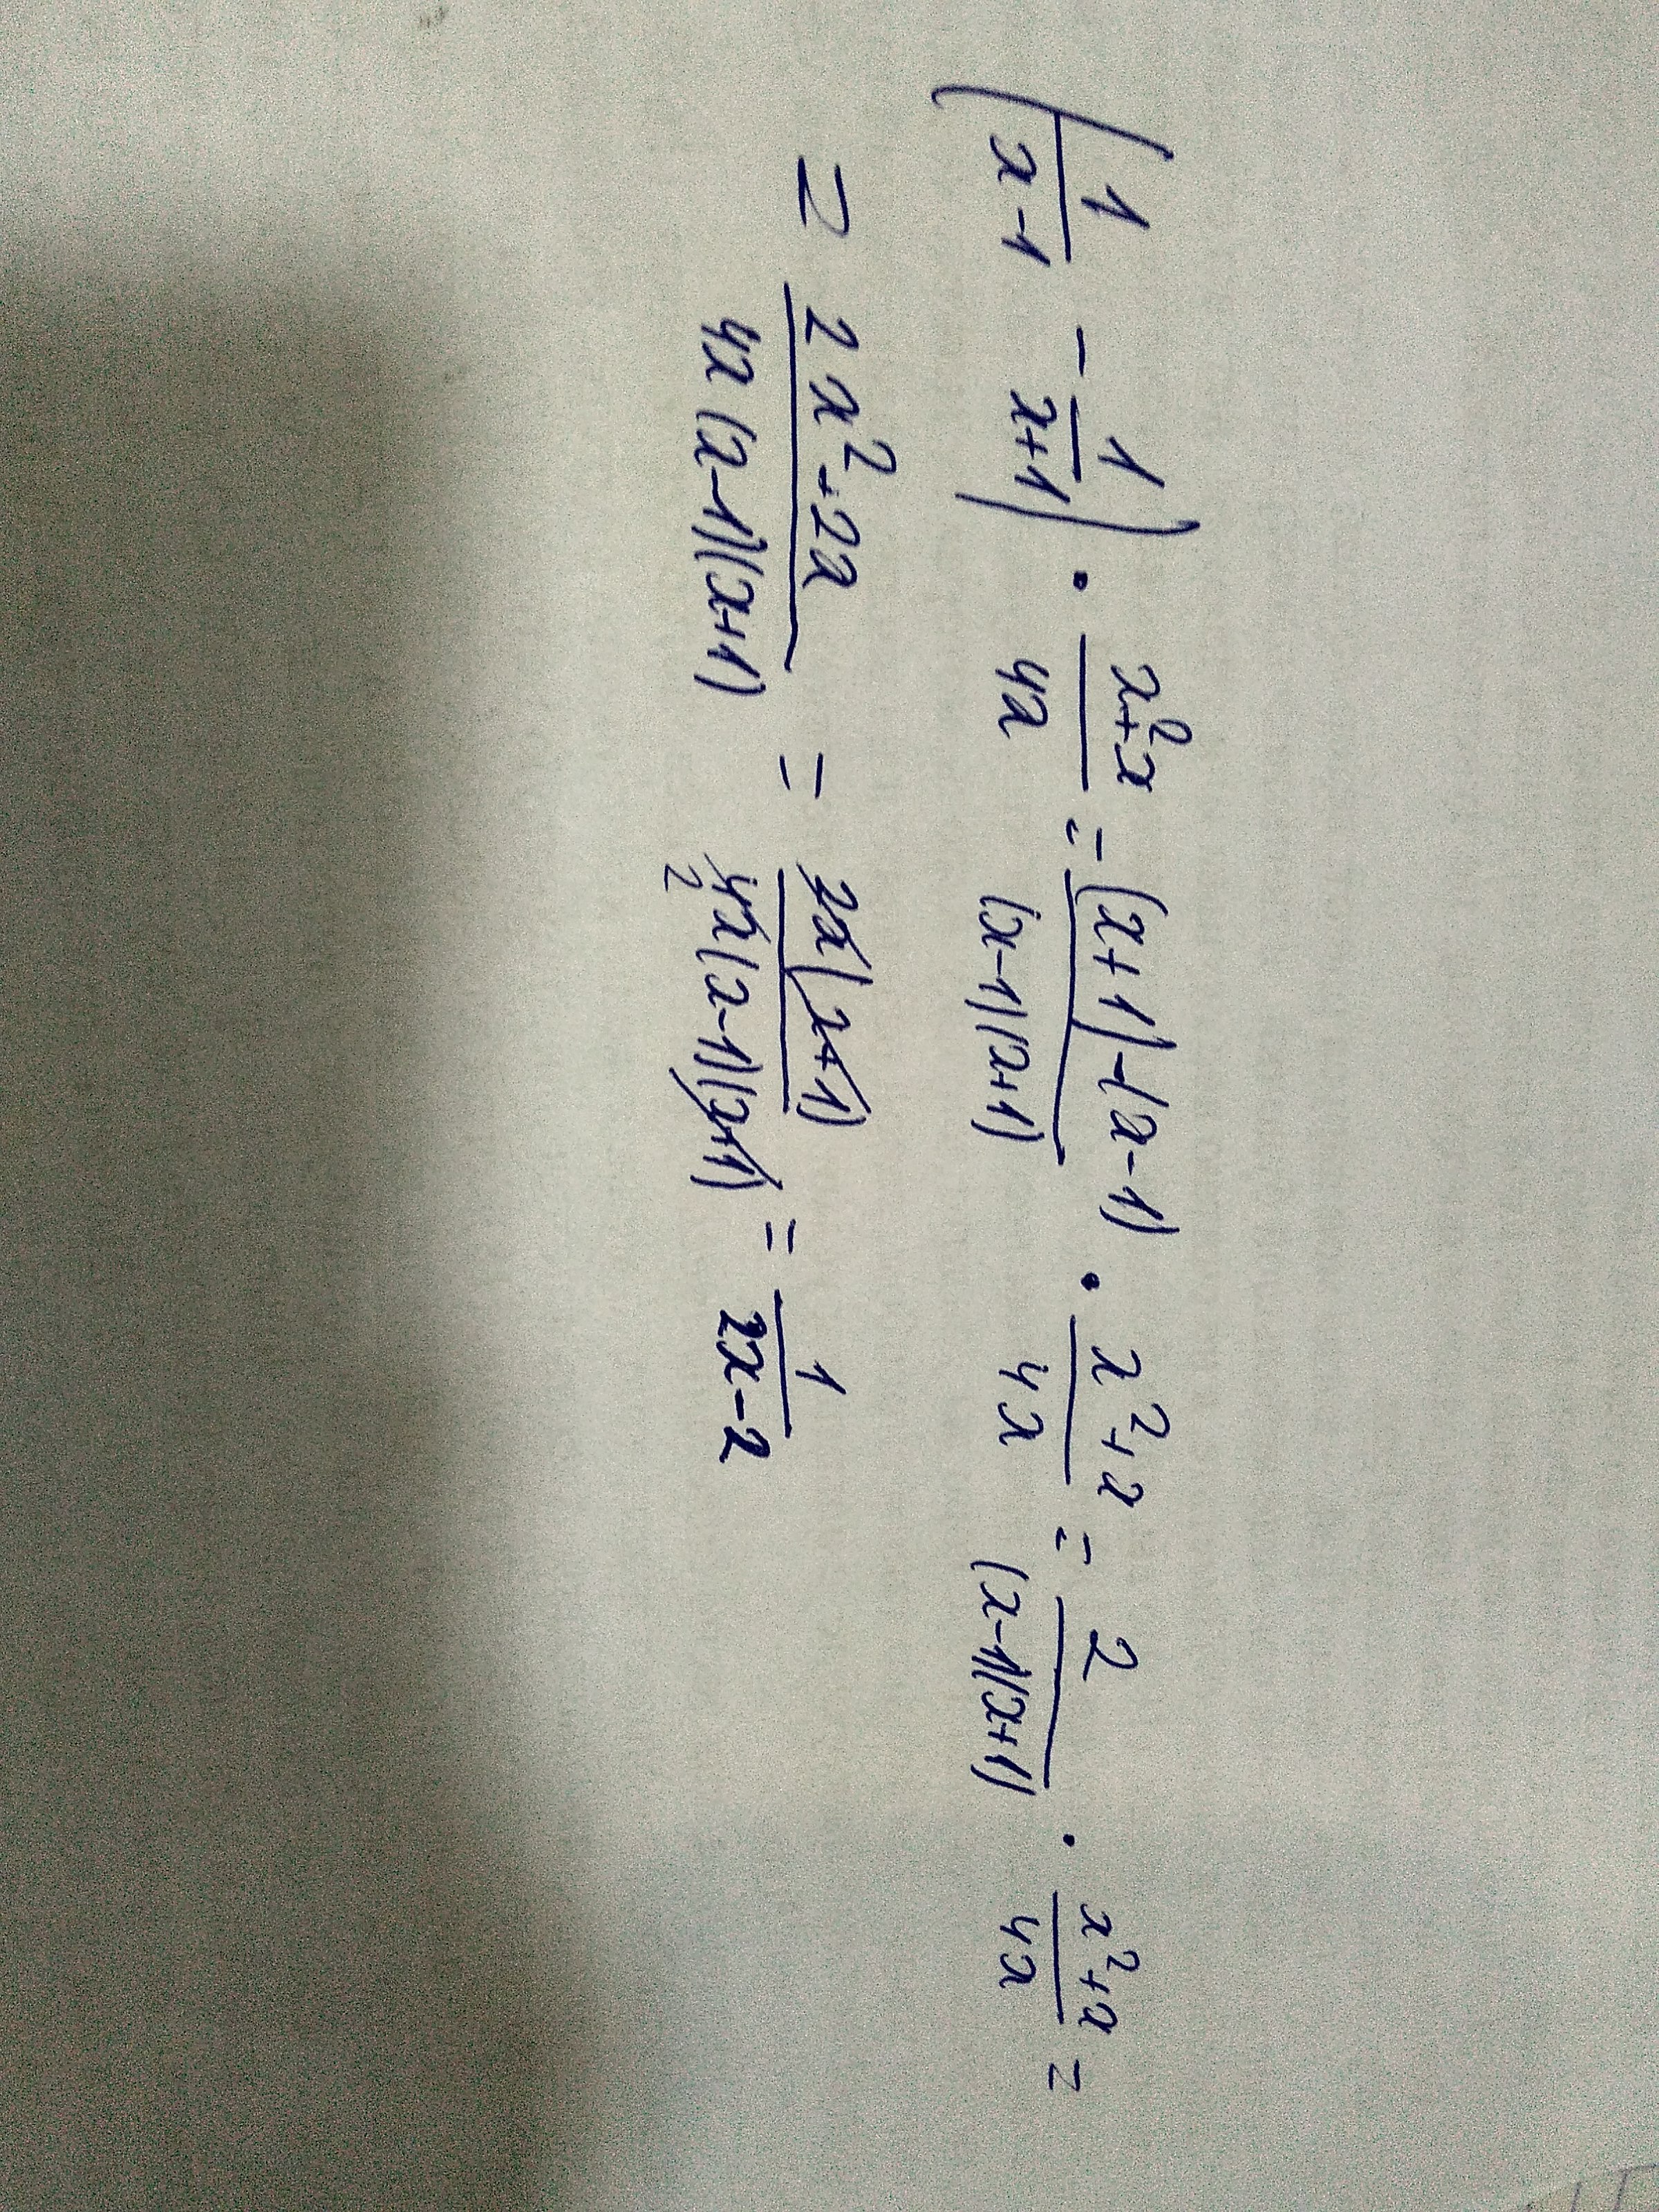 (1/(x-1) - 1/(x+1)) · (x²+x)/(4x) = ((x+1)-(x-1))/((x-1)(x+1)) · (x²+x)/(4x) = 2/((x-1)(x+1)) · (x²+x)/(4x) =
= (2x²+2x)/(4x(x-1)(x+1)) = (2x(x+1))/(4x(x-1)(x+1)) 2 = 1/(2x-2)